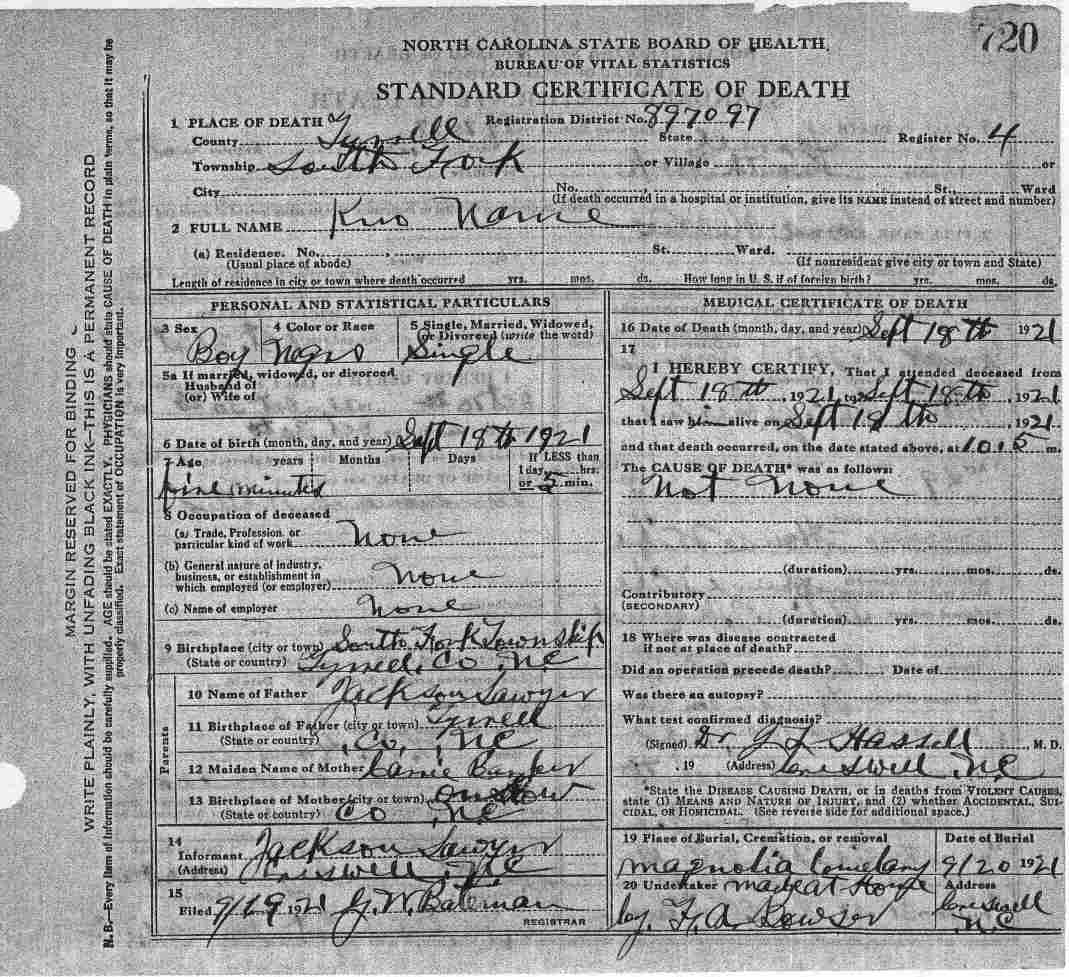 720
NORTH CAROLINA STATE BOARD OF HEALTH,
BUREAU OF VITAL STATISTICS
STANDARD CERTIFICATE OF DEATH
1 PLACE OF DEATH Registration District No. 897097
County Tyrrell State Register No. 4
Township South Fork or Village or
City No. , St., Ward
(If death occurred in a hospital or institution, give its NAME instead of street and number)
2 FULL NAME Kno Name
(a) Residence. No. St. Ward.
(Usual place of abode) (If nonresident give city or town and State)
Length of residence in city or town where death occurred yrs. mos. ds. How long in U. S. if of foreign birth? yrs. mos. ds.
PERSONAL AND STATISTICAL PARTICULARS
3 Sex 4 Color or Race 5 Single, Married, Widowed,
or Divorced (write the word)
Boy Negro Single
5a If married, widowed, or divorced
Husband of
(or) Wife of
6 Date of birth (month, day, and year) Sept 18th 1921
7 Age years Months Days If LESS than
1 day, hrs.
five minutes or 5 min.
8 Occupation of deceased
(a) Trade, Profession, or
particular kind of work None
(b) General nature of industry,
business, or establishment in
which employed (or employer) None
(c) Name of employer None
9 Birthplace (city or town) South Fork Township
(State or country) Tyrrell, Co, NC
Parents
10 Name of Father Jackson Sawyer
11 Birthplace of Father (city or town) Tyrrell
(State or country) Co, NC
12 Maiden Name of Mother
13 Birthplace of Mother (city or town) Onslow
(State or country) Co, NC
14
Informant Jackson Sawyer
(Address) Creswell, NC
15
Filed 9/19 1921 G. W. Bateman
REGISTRAR
MEDICAL CERTIFICATE OF DEATH
16 Date of Death (month, day, and year) Sept 18th 1921
17
I HEREBY CERTIFY, That I attended deceased from
Sept 18th, 1921 to Sept 18th, 1921
that I saw him alive on Sept 18th, 1921
and that death occurred, on the date stated above, at 1015 m.
The CAUSE OF DEATH* was as follows:
Not None
(duration) yrs. mos. ds.
Contributory
(SECONDARY)
(duration) yrs. mos. ds.
18 Where was disease contracted
If not at place of death?
Did an operation precede death? Date of
Was there an autopsy?
What test confirmed diagnosis?
(Signed) Dr Hassell M. D.
, 19 (Address) Creswell, NC
*State the DISEASE CAUSING DEATH, or in deaths from VIOLENT CAUSES,
state (1) MEANS AND NATURE OF INJURY, and (2) whether ACCIDENTAL, SUI-
CIDAL, OR HOMICIDAL. (See reverse side for additional space.)
19 Place of Burial, Cremation, or removal Date of Burial
Magnolia 9/20 1921
20 Undertaker Address
by F. A. Bowser Creswell
N.C
MARGIN RESERVED FOR BINDING
WRITE PLAINLY, WITH UNFADING BLACK INK—THIS IS A PERMANENT RECORD
N. B.—Every item of information should be carefully supplied. AGE should be stated EXACTLY. PHYSICIANS should state CAUSE OF DEATH in plain terms, so that it may be
properly classified. Exact statement of OCCUPATION is very important.